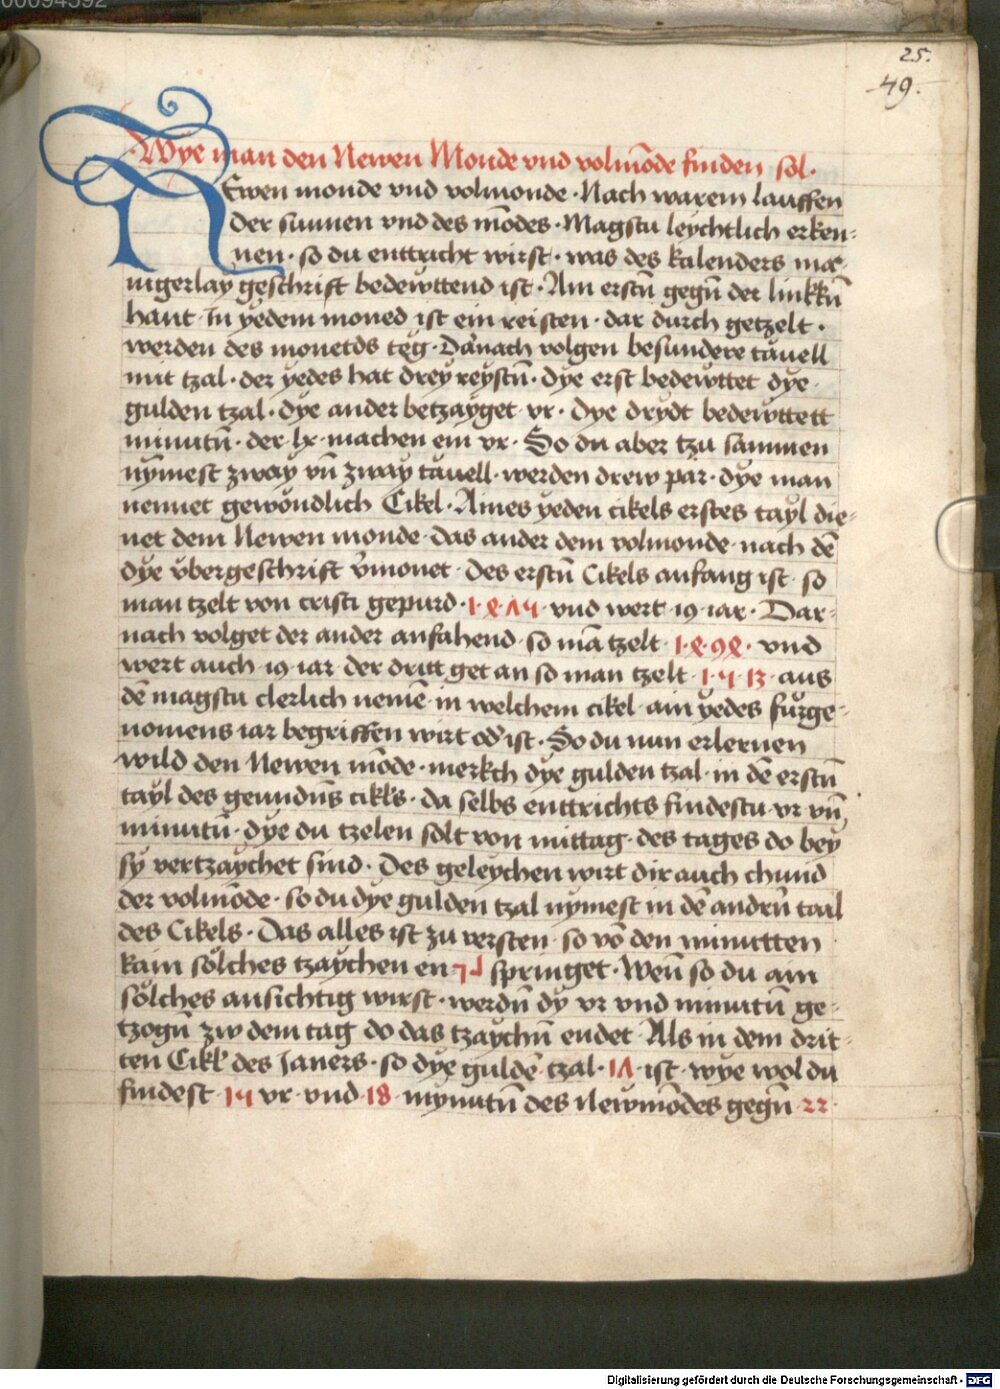 00094392
25.
49.
Wye man den Newen Monde vnd volmōde finden sol.
NEwen monde vnd volmonde · Nach warem lauffen
der sunnen vnd des mōdes · Magstu leychtlich erken-
nen · so du enttricht wirst · was des kalenders ma-
nigerlay geschrift bedewttend ist · Am erstn̄ gegn̄ der linkkn̄
hant · In yedem moned ist ein reisten · dar durch getzelt ·
werden des monetds teg · Darnach volgen besundere tauell
mit tzal · der yedes hat drey reystn̄ · dye erst bedewttet dye
gulden tzal · dye ander betzayget vr · dye drydt bedewttett
minutn̄ · der lx machen ein vr · So du aber tzu sammen
nymest zway vn̄ zway tauell · werden drew par · dye man
nennet gewöndlich Cikel · Aines yeden cikels erstes tayl die-
net dem Newen monde · das ander dem volmonde · nach dē
dye vbergeschrift v̄monet · Des erstn̄ Cikels anfang ist · so
man tzelt von cristi gepurd · 1·8·75 · vnd wert 19 iar · Dar-
nach volget der ander anfahend · so mā tzelt · 1·8·98 · vnd
wert auch 19 iar · der dritt get an so man tzelt · 1·5·13 · aus
dē magstu clerlich nemē · in welchem cikel · ain yedes fürge-
nomens iar begriffen wirt od' ist · So du nun erlernen
wild den Newen mōde · merkch dye gulden tzal · in dē erstn̄
tayl des gefundn̄s cikls · da selbs enttrichts findestu · vr vn̄
minutn̄ · dye du tzelen solt von mittag · des tages do bey
sy vertzaychet sind · Des geleychen wirt dir auch chund
der volmōde · so du dye gulden tzal nymest in dē andrn̄ tail
des Cikels · Das alles ist zu versten · so vō den minutten
kain sölches tzaychen en springet · Wen̄ so du am
sölches ansichtig wirst · werdn̄ dy vr vnd minutn̄ ge-
tzogn̄ zw dem tag do das tzaychn̄ endet · Als in dem drit-
ten Cikl' des Janers · so dye guldē tzal · 17 · ist · wye wol du
findest · 15 vr · vnd · 18 · mynutn̄ des newmōdes gegn̄ · 22 ·
Digitalisierung gefördert durch die Deutsche Forschungsgemeinschaft · DFG